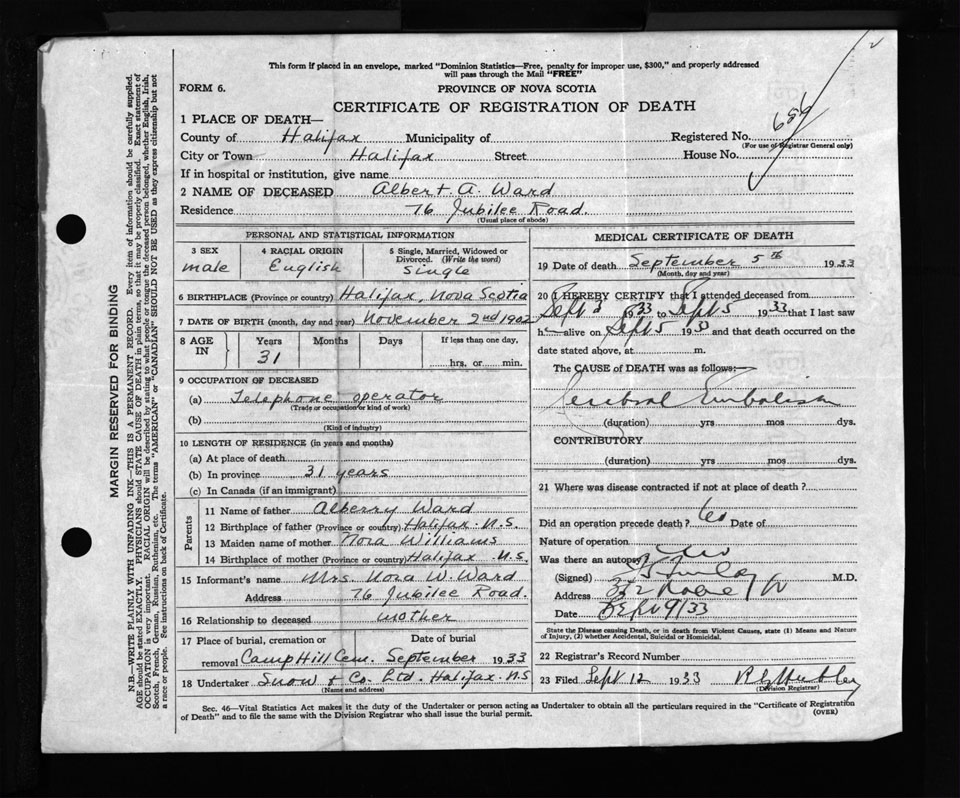 2
This form if placed in an envelope, marked "Dominion Statistics—Free, penalty for improper use, $300," and properly addressed
will pass through the Mail "FREE"
FORM 6.
PROVINCE OF NOVA SCOTIA
CERTIFICATE OF REGISTRATION OF DEATH
1 PLACE OF DEATH—
County of Halifax Municipality of Registered No. 686
(For use of Registrar General only)
City or Town Halifax Street House No.
If in hospital or institution, give name
2 NAME OF DECEASED Albert A. Ward
Residence 76 Jubilee Road.
(Usual place of abode)
PERSONAL AND STATISTICAL INFORMATION
3 SEX 4 RACIAL ORIGIN 5 Single, Married, Widowed or Divorced. (Write the word)
male English Single
6 BIRTHPLACE (Province or country) Halifax, Nova Scotia
7 DATE OF BIRTH (month, day and year) November 2nd 1902
8 AGE IN Years Months Days If less than one day,
31 hrs. or min.
9 OCCUPATION OF DECEASED
(a) Telephone operator
(Trade or occupation or kind of work)
(b)
(Kind of industry)
10 LENGTH OF RESIDENCE (in years and months)
(a) At place of death
(b) In province 31 years
(c) In Canada (if an immigrant)
Parents
11 Name of father Alberry Ward
12 Birthplace of father (Province or country) Halifax N.S.
13 Maiden name of mother Nora Williams
14 Birthplace of mother (Province or country) Halifax N.S.
15 Informant's name Mrs. Nora W. Ward
Address 76 Jubilee Road.
16 Relationship to deceased mother
17 Place of burial, cremation or Date of burial
removal Camp Hill Cem. September 1933
18 Undertaker Snow & Co. Ltd. Halifax. N.S
(Name and address)
MEDICAL CERTIFICATE OF DEATH
19 Date of death September 5th 1933
(Month, day and year)
20 I HEREBY CERTIFY that I attended deceased from
Sept 3 1933 to Sept 5 1933 that I last saw
h alive on Sept 5 1933 and that death occurred on the
date stated above, at m.
The CAUSE of DEATH was as follows:
Cerebral Embolism
(duration) yrs mos dys.
CONTRIBUTORY
(duration) yrs mos dys.
21 Where was disease contracted if not at place of death?
Did an operation precede death? Date of
Nature of operation
Was there an autopsy
(Signed) M.D.
Address
Date Sept 9/33
State the Disease causing Death, or in death from Violent Causes, state (1) Means and Nature
of Injury, (2) whether Accidental, Suicidal or Homicidal.
22 Registrar's Record Number
23 Filed Sept 12 1933
(Division Registrar)
Sec. 46—Vital Statistics Act makes it the duty of the Undertaker or person acting as Undertaker to obtain all the particulars required in the "Certificate of Registration
of Death" and to file the same with the Division Registrar who shall issue the burial permit.
(OVER)
MARGIN RESERVED FOR BINDING
N.B.—WRITE PLAINLY WITH UNFADING INK—THIS IS A PERMANENT RECORD. Every item of information should be carefully supplied.
AGE should be stated EXACTLY. PHYSICIANS should STATE CAUSE OF DEATH in plain terms, so that it may be properly classified. Exact statement of
OCCUPATION is very important. RACIAL ORIGIN will be described by stating to what people or tongue the deceased person belonged, whether English, Irish,
Scotch, French, German, Russian, Ruthenian, etc. The terms "AMERICAN" or "CANADIAN" SHOULD NOT BE USED as they express citizenship but not
a race or people. See instructions on back of Certificate.